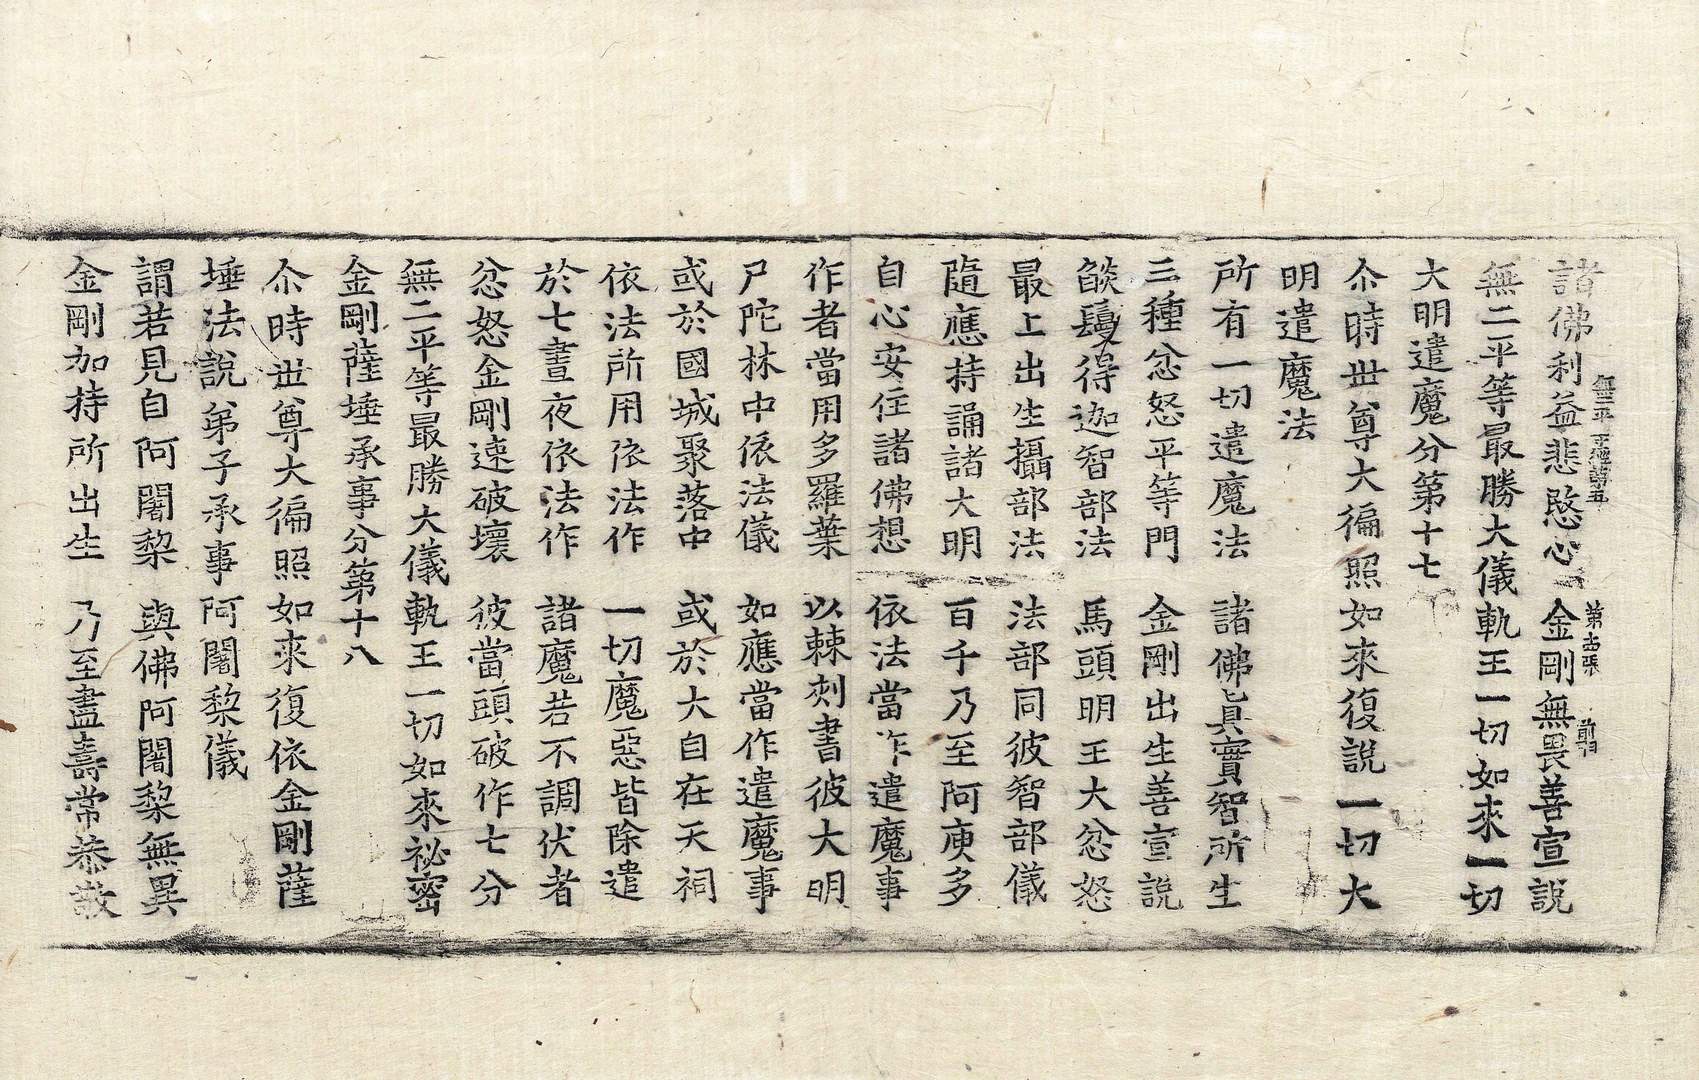 無二平 等卷第五 第十四張 前
諸佛利益悲愍心 金剛無畏善宣說
無二平等最勝大儀軌王一切如來一切
大明遣魔分第十七
尒時丗尊大徧照如來復說一切大
明遣魔法
所有一切遣魔法 諸佛眞實智所生
三種忿怒平等門 金剛出生善宣說
燄鬘得迦智部法 馬頭明王大忿怒
最上出生攝部法 法部同彼智部儀
隨應持誦諸大明 百千乃至阿庾多
自心安住諸佛想 依法當作遣魔事
作者當用多羅葉 以棘刺書彼大明
尸陀林中依法儀 如應當作遣魔事
或於國城聚落中 或於大自在天祠
依法所用依法作 一切魔惡皆除遣
於七晝夜依法作 諸魔若不調伏者
忿怒金剛速破壞 彼當頭破作七分
無二平等最勝大儀軌王一切如來祕密
金剛薩埵承事分第十八
尒時丗尊大徧照如來復依金剛薩
埵法說弟子承事阿闍梨儀
謂若見自阿闍梨 與佛阿闍梨無異
金剛加持所出生 乃至盡壽常恭敬